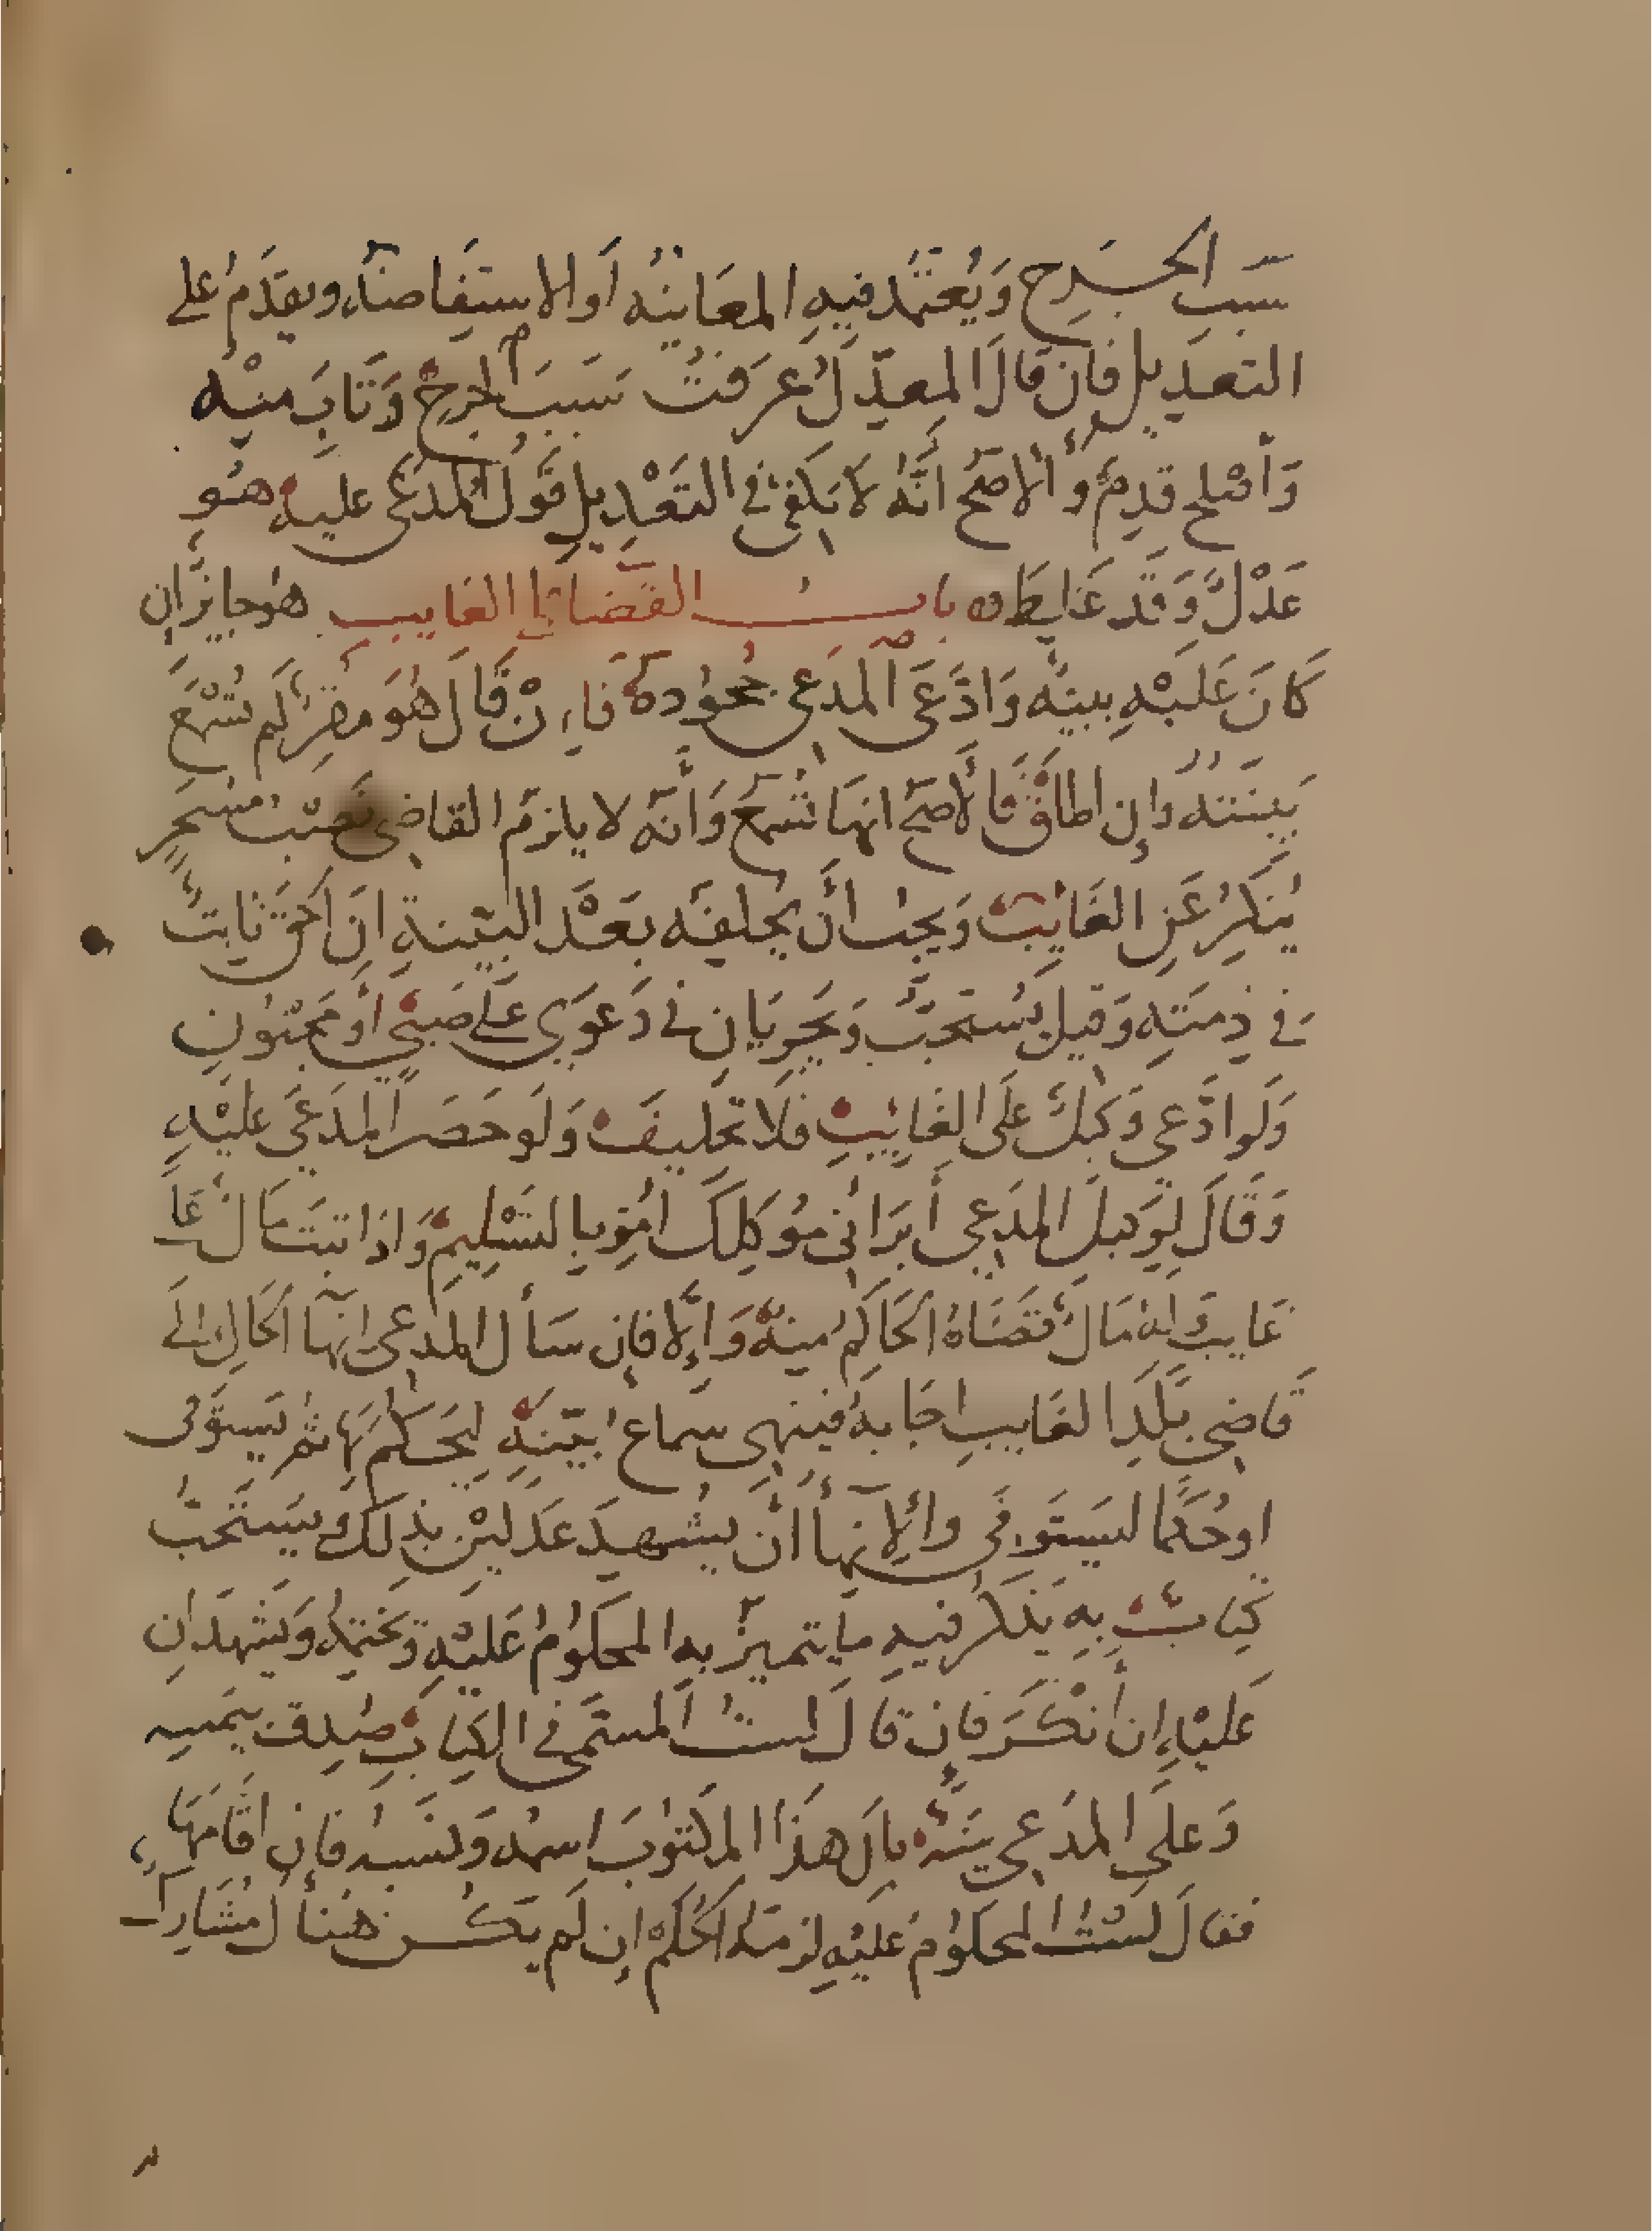 سبب الجرح وَيُعتمَد فيهِ المعَاينهُ اَو الاستفَاضهُ ويقدَمُ على
التعدِيل فَان قالَ المعدِّلُ عرَفتُ سَبَبَ الجرحِ وَتَابَ منهُ
وَاصْلح قدِمَ وَالاصَح انَّهُ لا يَكفى في التعْدِيلِ قَولُ المدعَى عليهِ هُو
عَدْلٌ وَقَد غَلِطَ بابُ القضَا على الغايب هوَ جايز ان
كانَ عَلَيْهِ بينه وَادَّعَى المدعى جُحوُدهُ فاِنْ قَالَ هُوَ مقِرٌ لم تُسْمَع
بَينتهُ وَإن اطلقَ فالاصَح انهَا تُسْمَعُ وَأنَّه لا يلزمُ القاضِى نَصْبُ مسَخَرٍ
يُنكِرُ عَنِ الغَايِبِ وَيجبُ أن يُحلفَه بَعْدَ البيّنةِ انَ الحقَ ثَابِتٌ
فى ذِمتِهِ وَقيلَ يُستحَبُّ وَيجرِيَانِ في دَعوَى عَلى صَبىٍ أو مجنوُنٍ
وَلَو ادَّعى وَكيلٌ عَلَى الغَايِبِ فلاَ تحليفَ وَلَو حَضَر المدَعَى عَليْهِ
وَقَالَ لِوَكيلَ المدَعِى أبرَانى مُوَكِلكَ اُمِرَ بالتسْلِيمِ وَاذا ثبَتَ مَالٌ عَلىَ
غَايبٍ وَلَهُ مَالٌ قَضَاهُ الحَاكِمُ منهُ وَإلا فاِن سَأل المدعِى انهَا الحَالِ الَى
قَاضِى بَلَدِ الغَايبِ اجَابهُ فينهِى سمَاعَ بيّنَةٍ ليَحكُم بهَا ثم يَستوفى
اوحُكمًا ليَستَوفى وَالاِنهَا أن يشُهِدَ عَدلَيْن بذلكَ وَيستَحبُّ
كِتابٌ بهِ يَذكرُ فيهِ ما يتميّز به المحكوُمُ عَليْهِ وَيختمهُ وَيَشهَدَانِ
عَليْهِ اِن أنكرَ فان قالَ لستُ المسمَى في الكتابِ صُدِقَ بيَمينِه
وَعلَى المدَعِى بيّنَةٌ بانَ هذَا المكتوُبَ اسمهُ وَنسَبهُ فاِن اقَامَهَا
فقالَ لسْتُ المحكوُمَ عَليْهِ لزمَهُ الحُكمُ اِن لَم يَكُن هُناكَ مُشَارِك